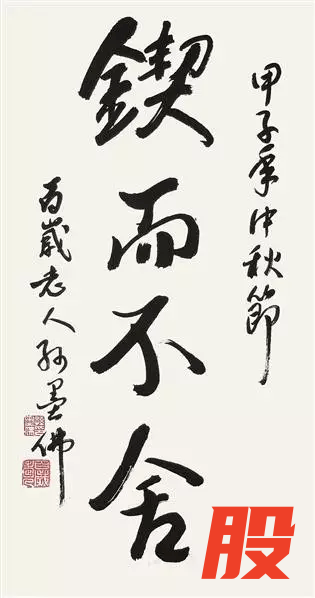 甲子年中秋節
鍥而不舍
百歲老人孙墨佛
股